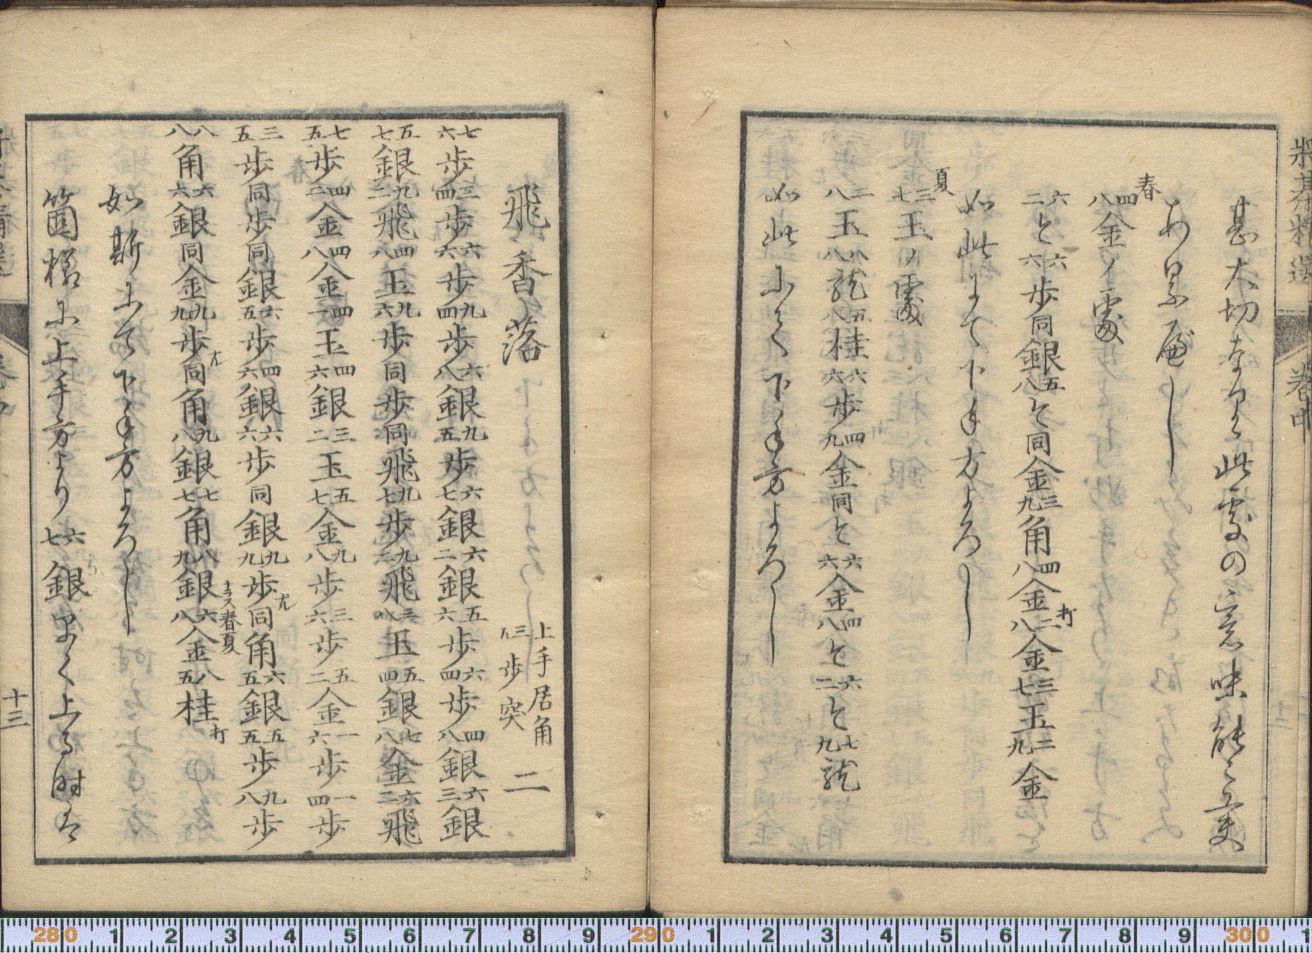 将棊精選 巻中
甚大切なり此處の意味能々工夫
あるべし
春 四八金ノ處
六二と六六歩同銀五八と同金三九角四八金二八金打三七玉二九金
如此にて下手方よろし
夏 三七玉ノ處
二八玉八八龍五八桂六六歩四九金同と六六金四八と六二と七九龍
如此にて下手方よろし
飛香落 上手居角 二
三五歩突
七六歩三四歩六六歩九四歩六八銀九五歩六七銀六二銀五六歩六四歩四八銀六三銀
五七銀九二飛四八玉九六歩同歩同飛九七歩九二飛三八玉五四銀七八金六二飛
七五歩四二金四八金四一玉四六銀三二玉五七金九八歩三六歩五二金一六歩一四歩
三五歩同歩同銀六五歩四六銀六六歩同銀九九歩同角六五銀五五歩九八歩
八八角六六銀同金九九歩同角九八銀七七角八九銀六八金八五桂打
如斯にて下手方よろし
箇様に上手方より六七銀
十三